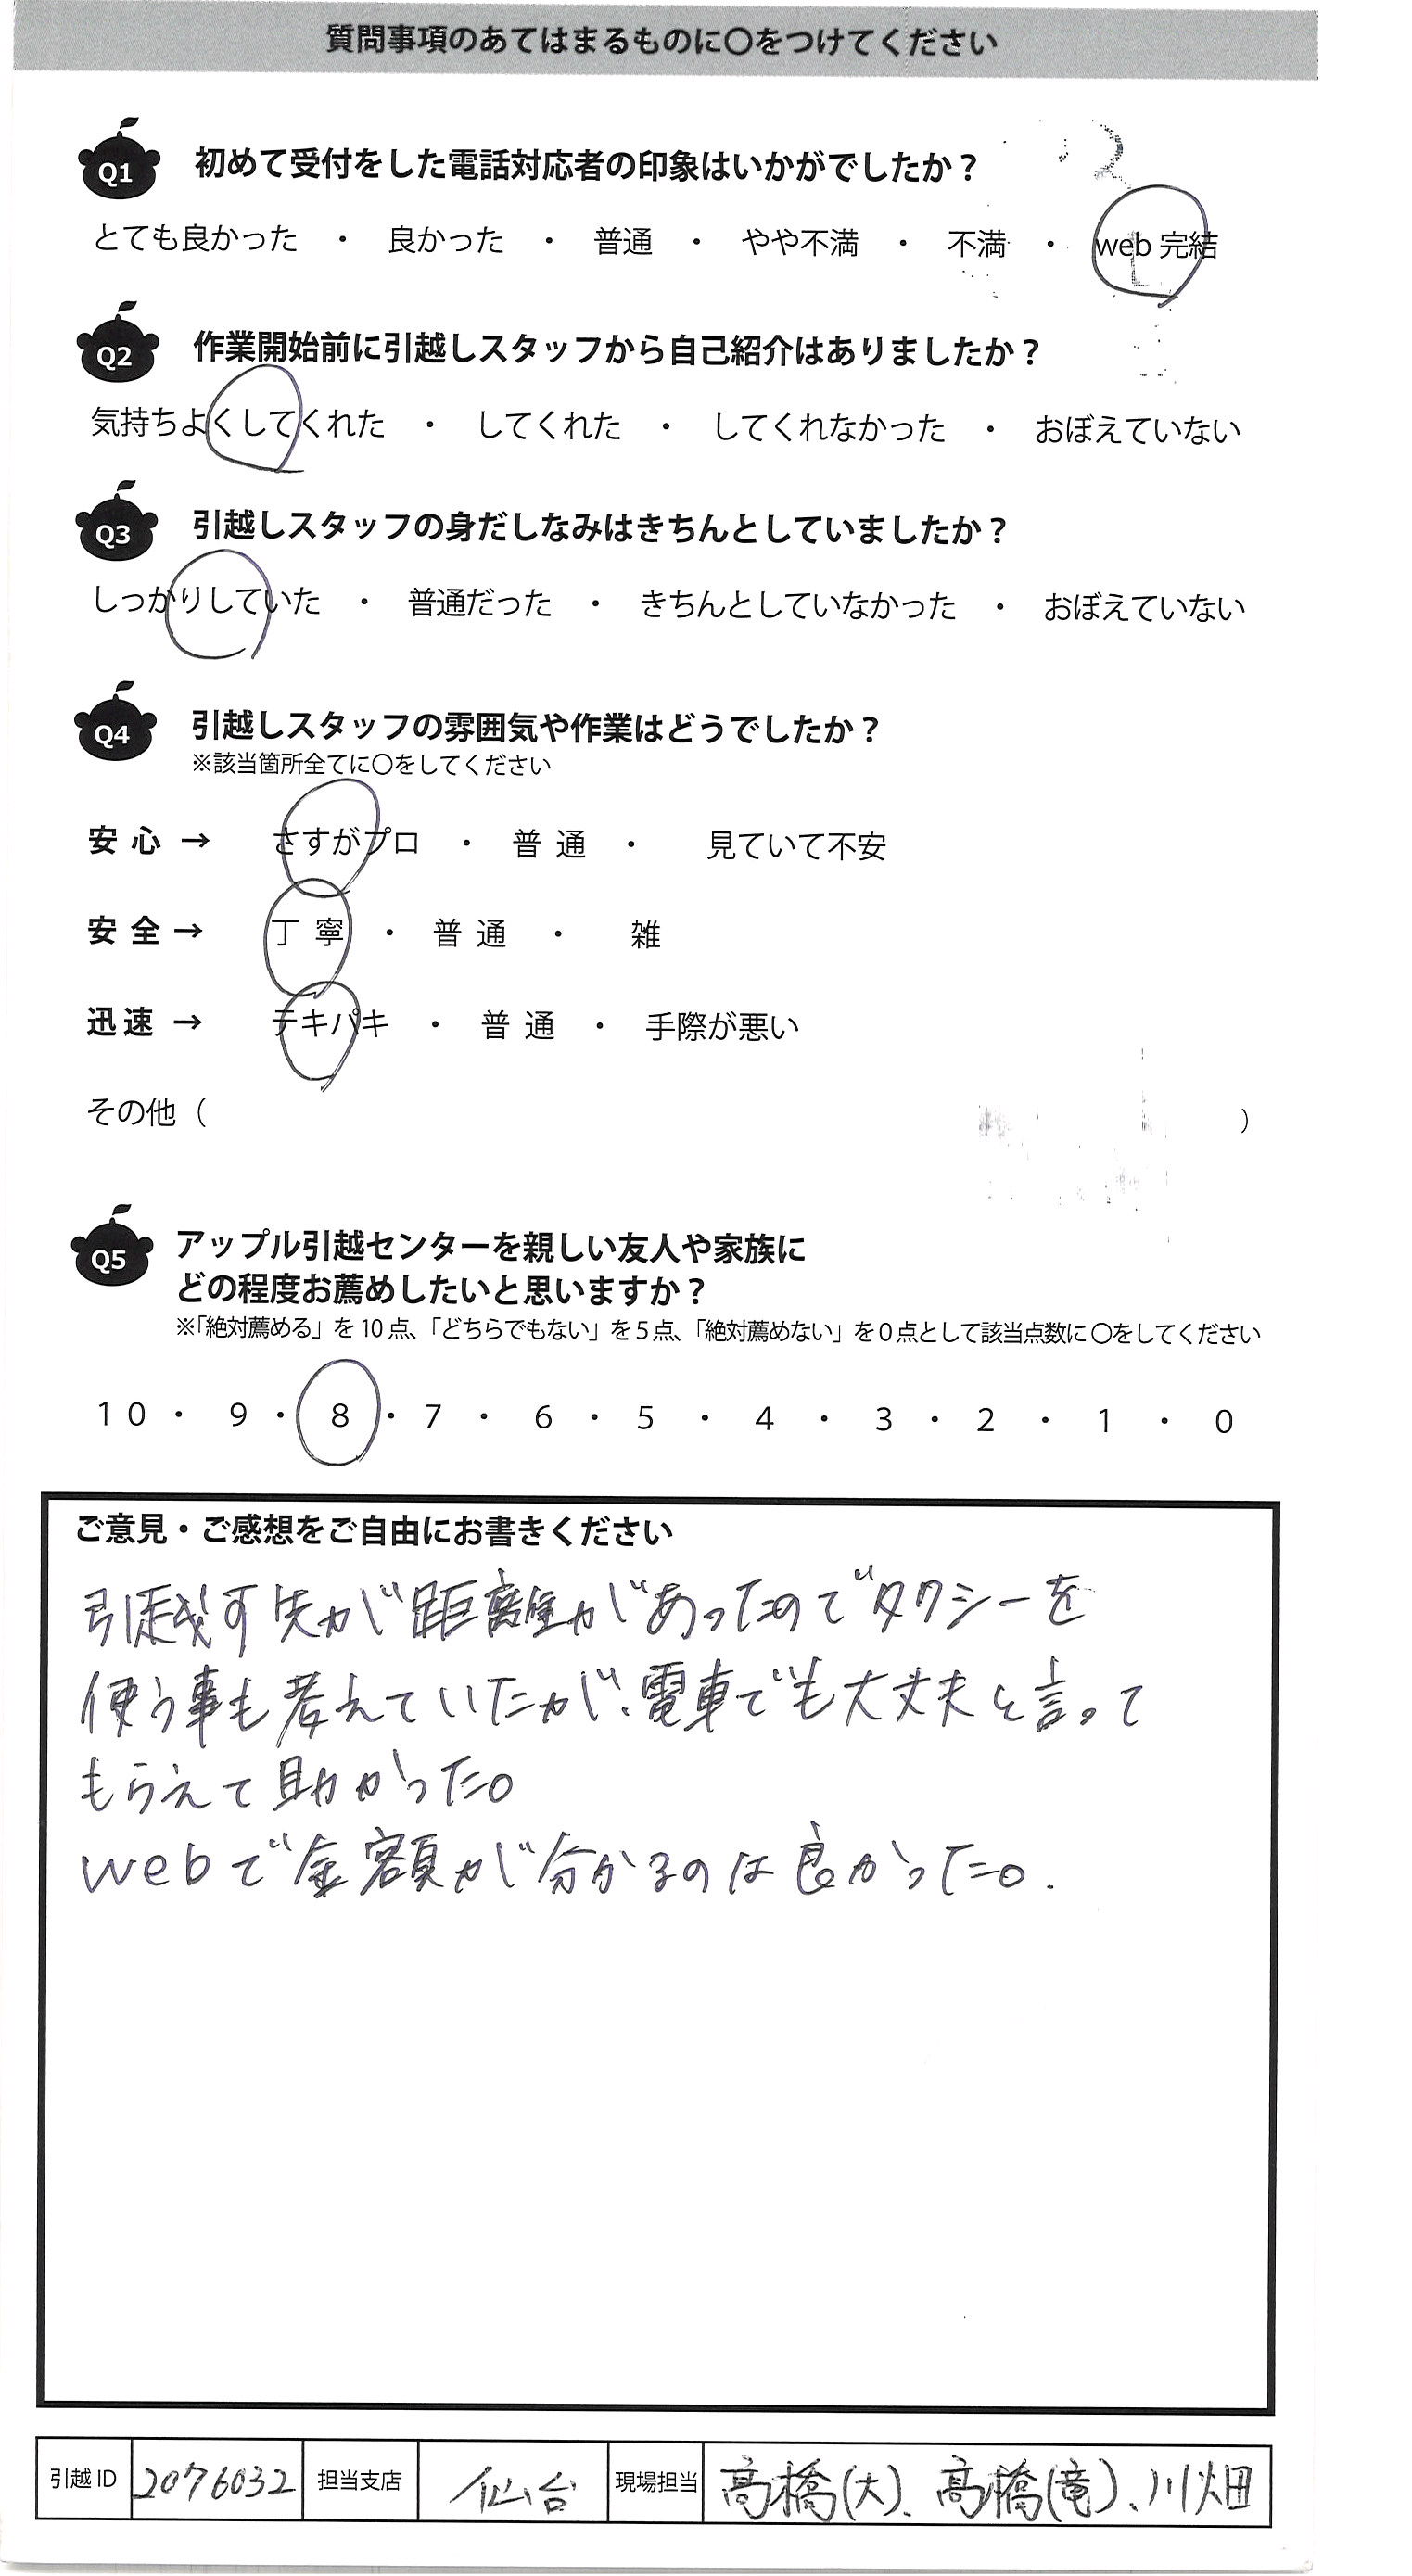 質問事項のあてはまるものに〇をつけてください
Q1 初めて受付をした電話対応者の印象はいかがでしたか？
とても良かった ・ 良かった ・ 普通 ・ やや不満 ・ 不満 ・ web 完結
Q2 作業開始前に引越しスタッフから自己紹介はありましたか？
気持ちよくしてくれた ・ してくれた ・ してくれなかった ・ おぼえていない
Q3 引越しスタッフの身だしなみはきちんとしていましたか？
しっかりしていた ・ 普通だった ・ きちんとしていなかった ・ おぼえていない
Q4 引越しスタッフの雰囲気や作業はどうでしたか？
※該当箇所全てに〇をしてください
安 心 → さすがプロ ・ 普 通 ・ 見ていて不安
安 全 → 丁 寧 ・ 普 通 ・ 雑
迅 速 → テキパキ ・ 普 通 ・ 手際が悪い
その他（ ）
Q5 アップル引越センターを親しい友人や家族に
どの程度お薦めしたいと思いますか？
※「絶対薦める」を 10 点、「どちらでもない」を 5 点、「絶対薦めない」を 0 点として該当点数に〇をしてください
10 ・ 9 ・ 8 ・ 7 ・ 6 ・ 5 ・ 4 ・ 3 ・ 2 ・ 1 ・ 0
ご意見・ご感想をご自由にお書きください
引越す先が距離があったのでタクシーを
使う事も考えていたが、電車でも大丈夫と言って
もらえて助かった。
webで金額が分かるのは良かった。
引越 ID 2076032 担当支店 仙台 現場担当 高橋(大)、高橋(竜)、川畑